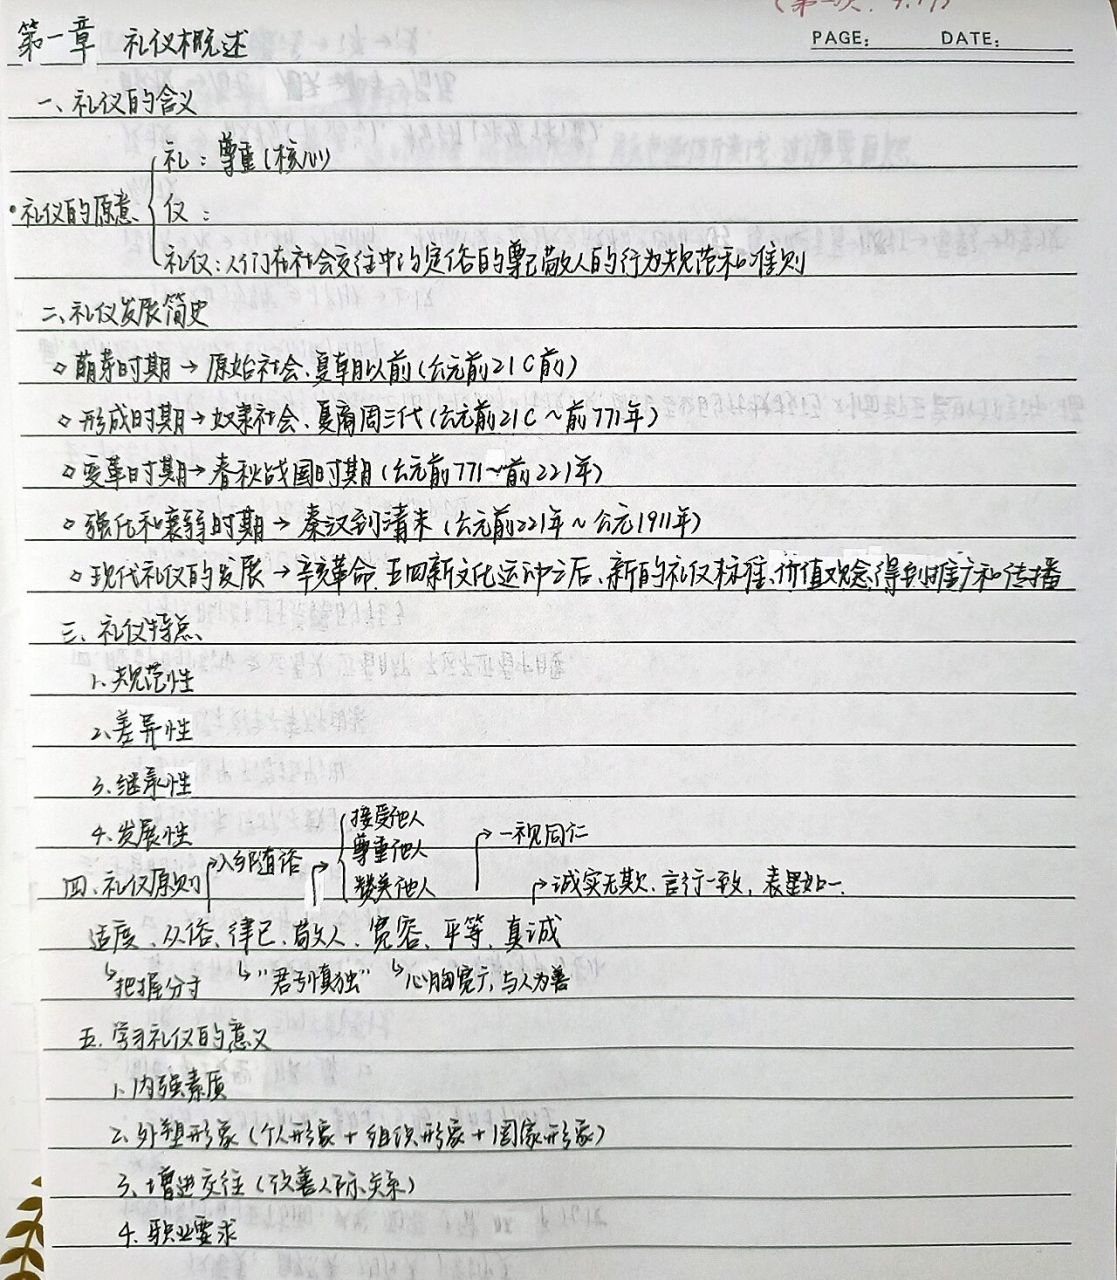 (第一次：9.17)
第一章 礼仪概述 PAGE: DATE:
一、礼仪的含义
礼：尊重(核心)
·礼仪的原意、 仪：
礼仪：人们在社会交往中约定俗的尊己敬人的行为规范和准则
二、礼仪发展简史
◇ 萌芽时期 → 原始社会、夏朝以前(公元前21C前)
◇ 形成时期 → 奴隶社会、夏商周三代(公元前21C～前771年)
◇ 变革时期 → 春秋战国时期(公元前771～前221年)
◇ 强化和衰弱时期 → 秦汉到清末(公元前221年～公元1911年)
◇ 现代礼仪的发展 → 辛亥革命、五四新文化运动之后、新的礼仪标准、价值观念、得到推广和传播
三、礼仪特点、
1、规范性
2、差异性
3、继承性
4、发展性
接受他人
→入乡随俗 → 尊重他人 → 一视同仁
四、礼仪原则 赞美他人 → 诚实无欺、言行一致，表里如一、
适度、从俗、律己、敬人、宽容、平等、真诚
↳把握分寸 ↳"君子慎独" ↳心胸宽广，与人为善
五、学习礼仪的意义
1、内强素质
2、外塑形象(个人形象＋组织形象＋国家形象)
3、增进交往(改善人际关系)
4、职业要求